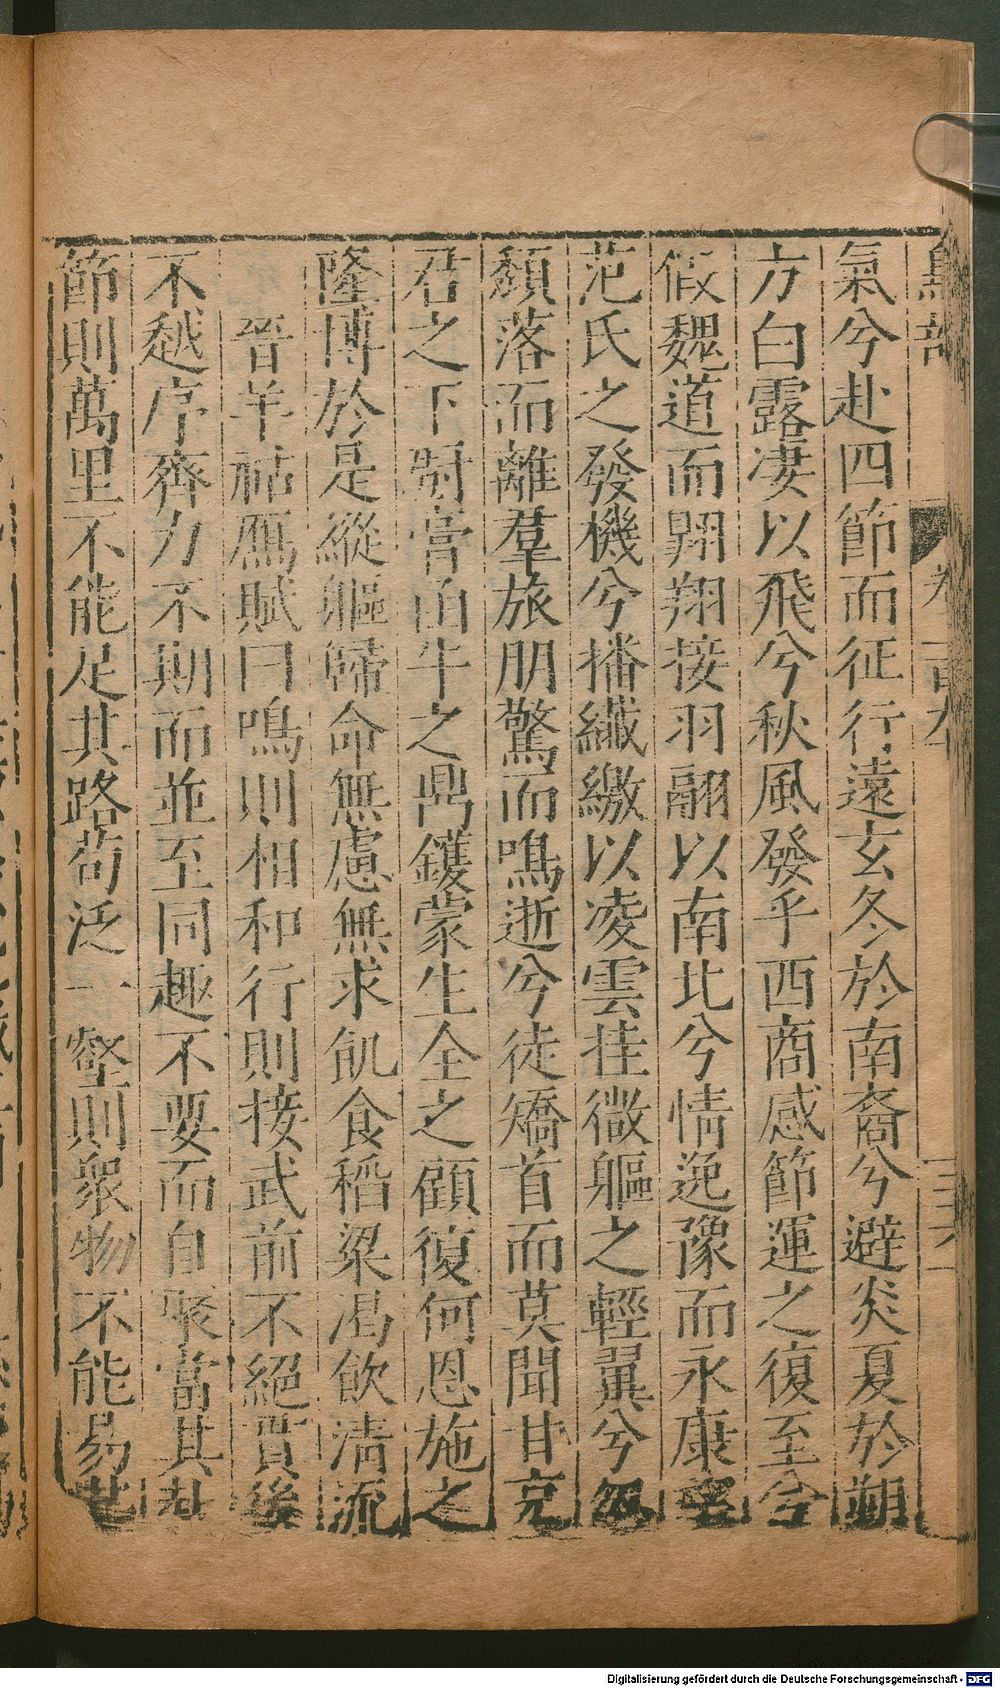 鳥部 卷一百九 三十六
氣兮赴四節而征行遠玄冬於南裔兮避炎夏於朔
方白露凄以飛兮秋風發乎西商感節運之復至兮
假魏道而翱翔接羽翮以南北兮情逸豫而永康望
范氏之發機兮播纖繳以凌雲挂微軀之輕翼兮忽
頹落而離羣旅朋驚而鳴逝兮徒矯首而莫聞甘充
君之下厨膏函牛之鼎鑊蒙生全之顧復何恩施之
隆博於是縱軀歸命無慮無求飢食稻粱渴飲清流
晉羊祜鴈賦曰鳴則相和行則接武前不絕貫後
不越序齊力不期而並至同趣不要而自聚當其赴
節則萬里不能足其路苟泛一壑則衆物不能易其
Digitalisierung gefördert durch die Deutsche Forschungsgemeinschaft - DFG